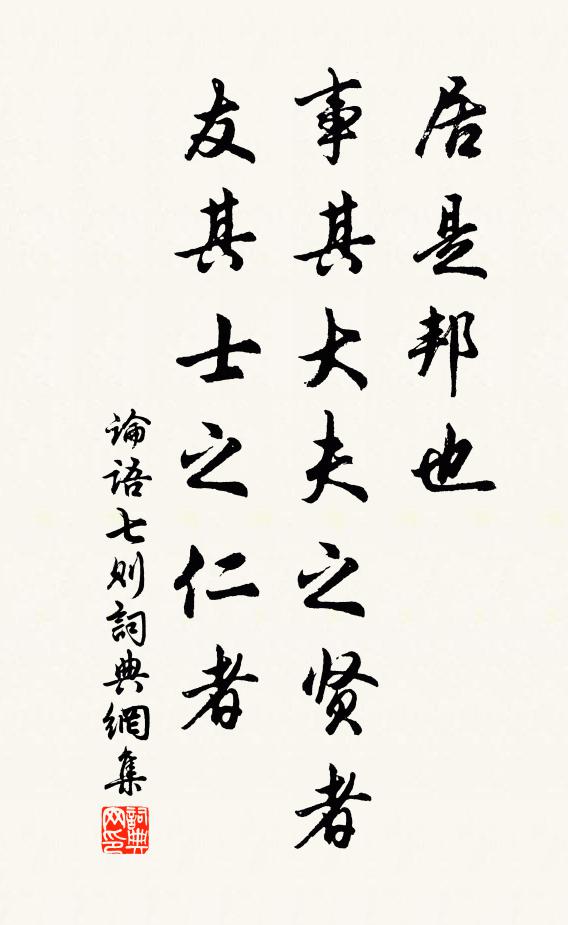 居是邦也
事其大夫之贤者
友其士之仁者
論語七则詞典網集
詞典
网印